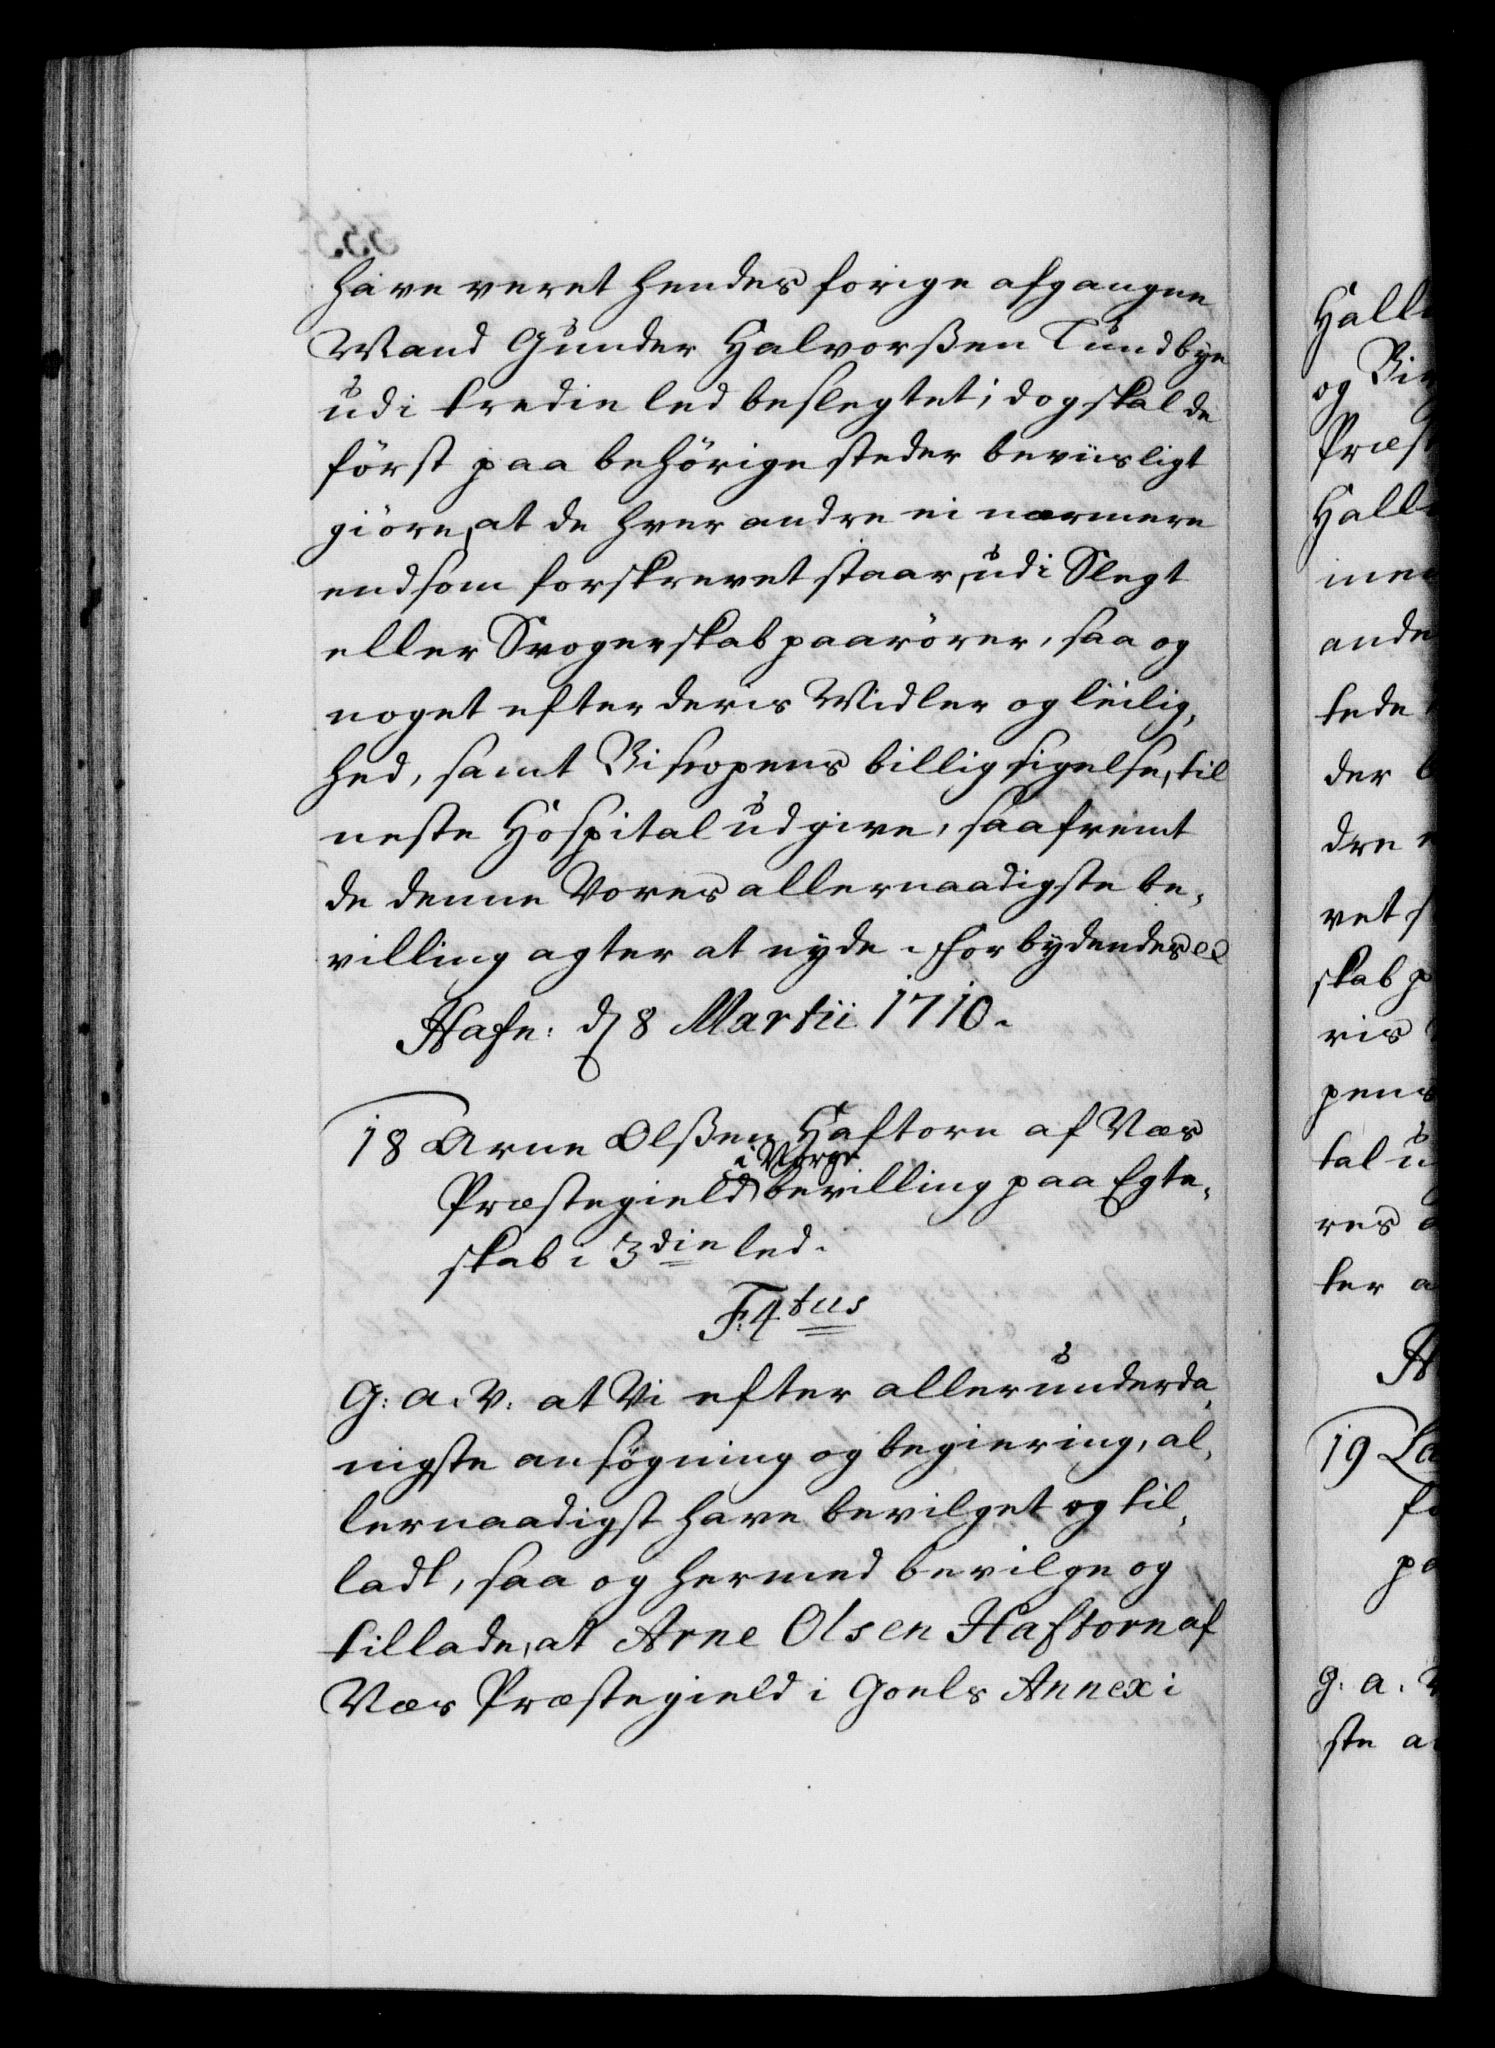 have veret hendes forige afgangne
Mand Gunder Halvorßen Tundbye
udi tredie led beslegtet; dog skal de
först paa behörige steder beviisligt
giöre, at de hver andre ei nærmere
end som forskrevet staar, udi Slegt
eller Svogerskab paarörer, saa og
noget efter deris Midler og leilig,
hed, samt Biscopens billigsigelse, til
neste Hospital udgive, saafremt
de denne Vores allernaadigste be,
villing agter at nyde. Forbydendes etc
Hafn: d 8 Martii 1710.
18 Arne Olßen Haftorn af Næs
i Norge
Præstegield bevilling paa Egte,
skab i 3die led.
F: 4tus
G: A. V: at Vi efter allerunderda,
nigste ansögning og begiering, al,
lernaadigst have bevilget og til,
ladt, saa og hermed bevilge og
tillade, at Arne Olsen Haftorn af
Næs Præstegield i Goels Annex i
Hall
og
Præst
Hall
men
ande
tede
der b
dre
vet s
skab p
ris
pens
tal u
res
ter a
19
pa
g: a. V
ste a